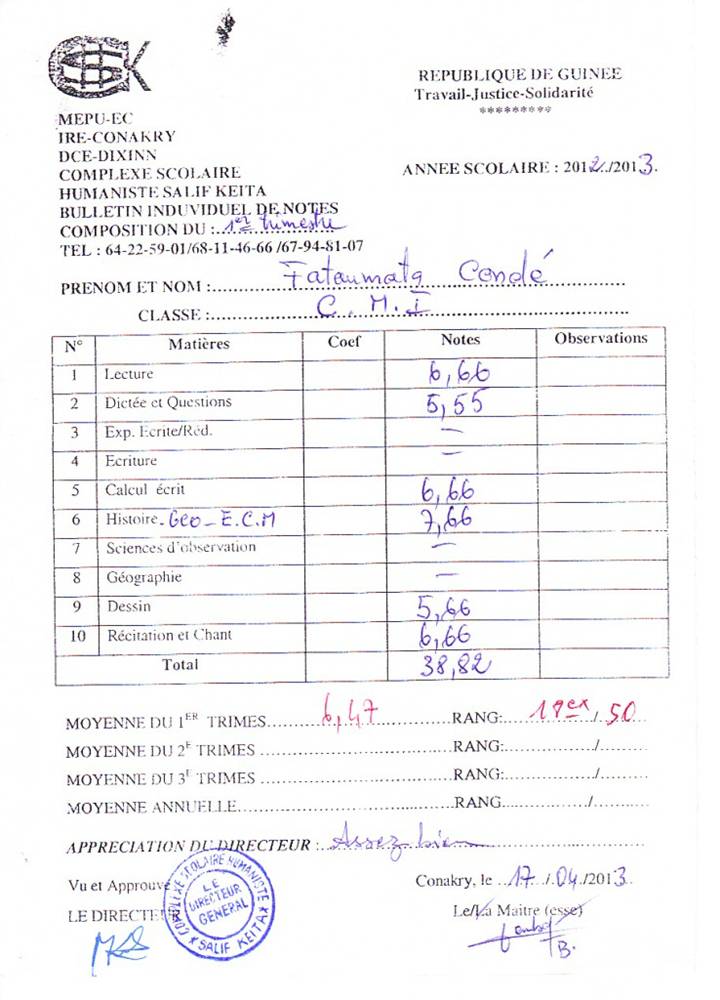 MEPU-EC
IRE-CONAKRY
DCE-DIXINN
COMPLEXE SCOLAIRE
HUMANISTE SALIF KEITA
BULLETIN INDUVIDUEL DE NOTES
COMPOSITION DU :..1er trimestre
TEL : 64-22-59-01/68-11-46-66 /67-94-81-07
REPUBLIQUE DE GUINEE
Travail-Justice-Solidarité
*********
ANNEE SCOLAIRE : 2012../2013.
PRENOM ET NOM :....Fatoumata Condé....
CLASSE :....C.M.I....
N° Matières Coef Notes Observations
1 Lecture 6,66
2 Dictée et Questions 5,55
3 Exp. Ecrite/Réd. —
4 Ecriture —
5 Calcul écrit 6,66
6 Histoire- Géo - E.C.M 7,66
7 Sciences d'observation —
8 Géographie —
9 Dessin 5,66
10 Récitation et Chant 6,66
Total 38,82
MOYENNE DU 1ER TRIMES....6,47....RANG:....18ex./.50...
MOYENNE DU 2E TRIMES ....RANG:..../....
MOYENNE DU 3E TRIMES ....RANG:..../....
MOYENNE ANNUELLE....RANG..../....
APPRECIATION DU DIRECTEUR :..Assez bien....
Vu et Approuvé
LE DIRECTEUR
COMPLEXE SCOLAIRE HUMANISTE
LE
DIRECTEUR
GENERAL
* SALIF KEITA *
Conakry, le ..17../.04./2013.
Le/La Maitre (esse)